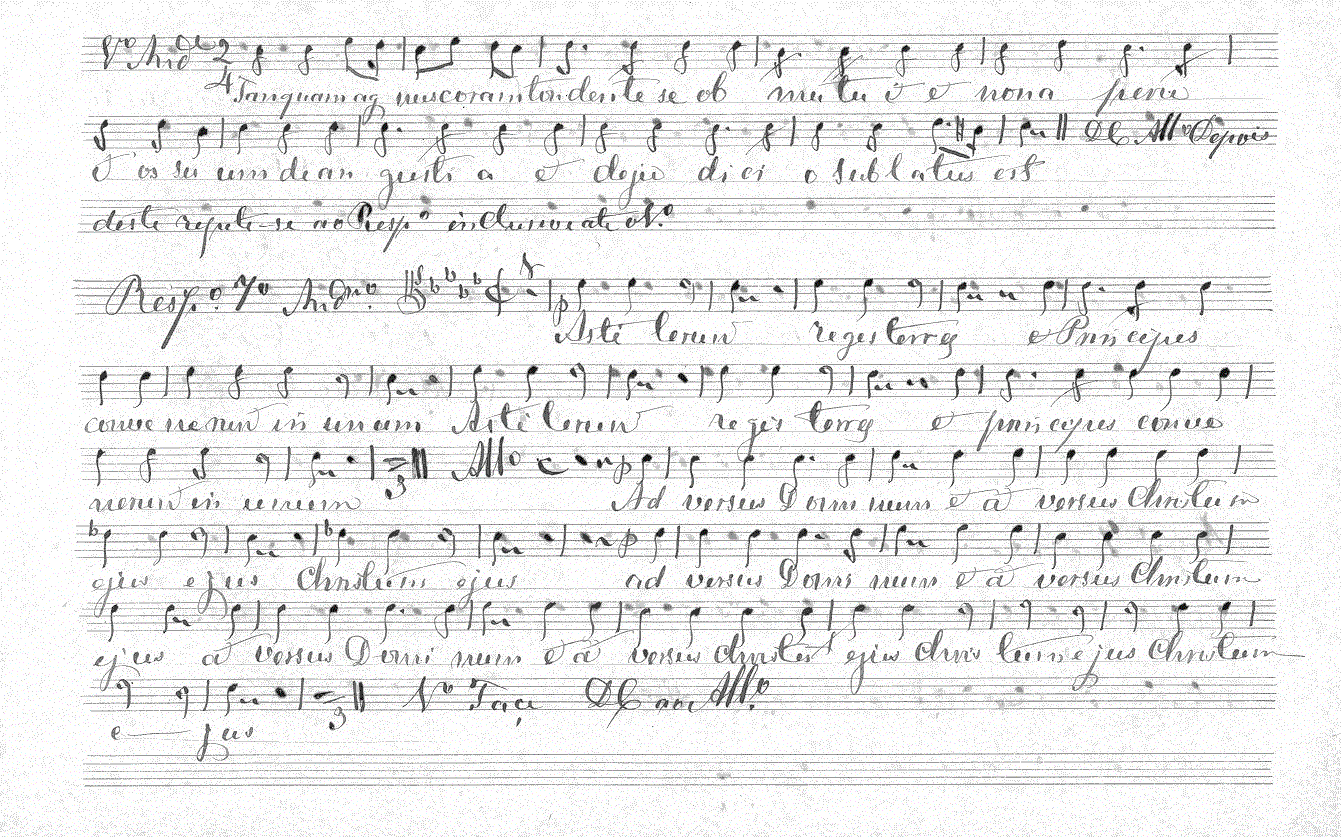 Vº And.te 2/4
Tanquam ag nus coram tondente se ob mu tu i t e non a peru
it os su um di an gusti a et de ju di ci o sub latus est
DC Allº Depois
deste repete-se ao Resp.º inclusive ate o Vº
Resp.º 7º And.no
p
Asti terun regis terrę et Principes
conve nerun in unum Asti terun regis terrę et principes conve
3 Allº p
nerun in unum Ad versus Domi num et a versus Christum
p
ejus ejus Christum ejus ad versus Domi num et a versus Christum
ejus a versus Domi num et a versus christu ejus Chris tum ejus Christum
3 Vº Taçi DC ao Allº
e jus